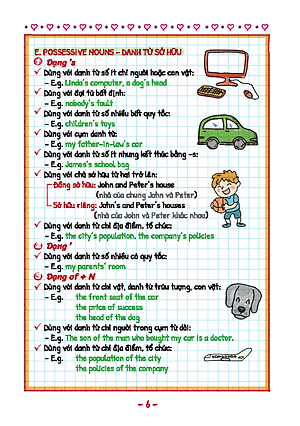 E. POSSESSIVE NOUNS – DANH TỪ SỞ HỮU
① Dạng 's
✓ Dùng với danh từ số ít chỉ người hoặc con vật:
– E.g. Linda's computer, a dog's head
✓ Dùng với đại từ bất định:
– E.g. nobody's fault
✓ Dùng với danh từ số nhiều bất quy tắc:
– E.g. children's toys
✓ Dùng với cụm danh từ:
– E.g. my father-in-law's car
✓ Dùng với danh từ số ít nhưng kết thúc bằng –s:
– E.g. James's school bag
✓ Dùng với chủ sở hữu từ hai trở lên:
– Đồng sở hữu: John and Peter's house
(nhà của chung John và Peter)
– Sở hữu riêng: John's and Peter's houses
(nhà của John và Peter khác nhau)
✓ Dùng với danh từ chỉ địa điểm, tổ chức:
– E.g. the city's population, the company's policies
② Dạng '
✓ Dùng với danh từ số nhiều có quy tắc:
– E.g. my parents' room
③ Dạng of + N
✓ Dùng với danh từ chỉ vật, danh từ trừu tượng, con vật:
– E.g. the front seat of the car
the price of success
the head of the dog
✓ Dùng với danh từ chỉ người trong cụm từ dài:
– E.g. The son of the man who bought my car is a doctor.
✓ Dùng với danh từ chỉ địa điểm, tổ chức:
– E.g. the population of the city
the policies of the company
– 6 –